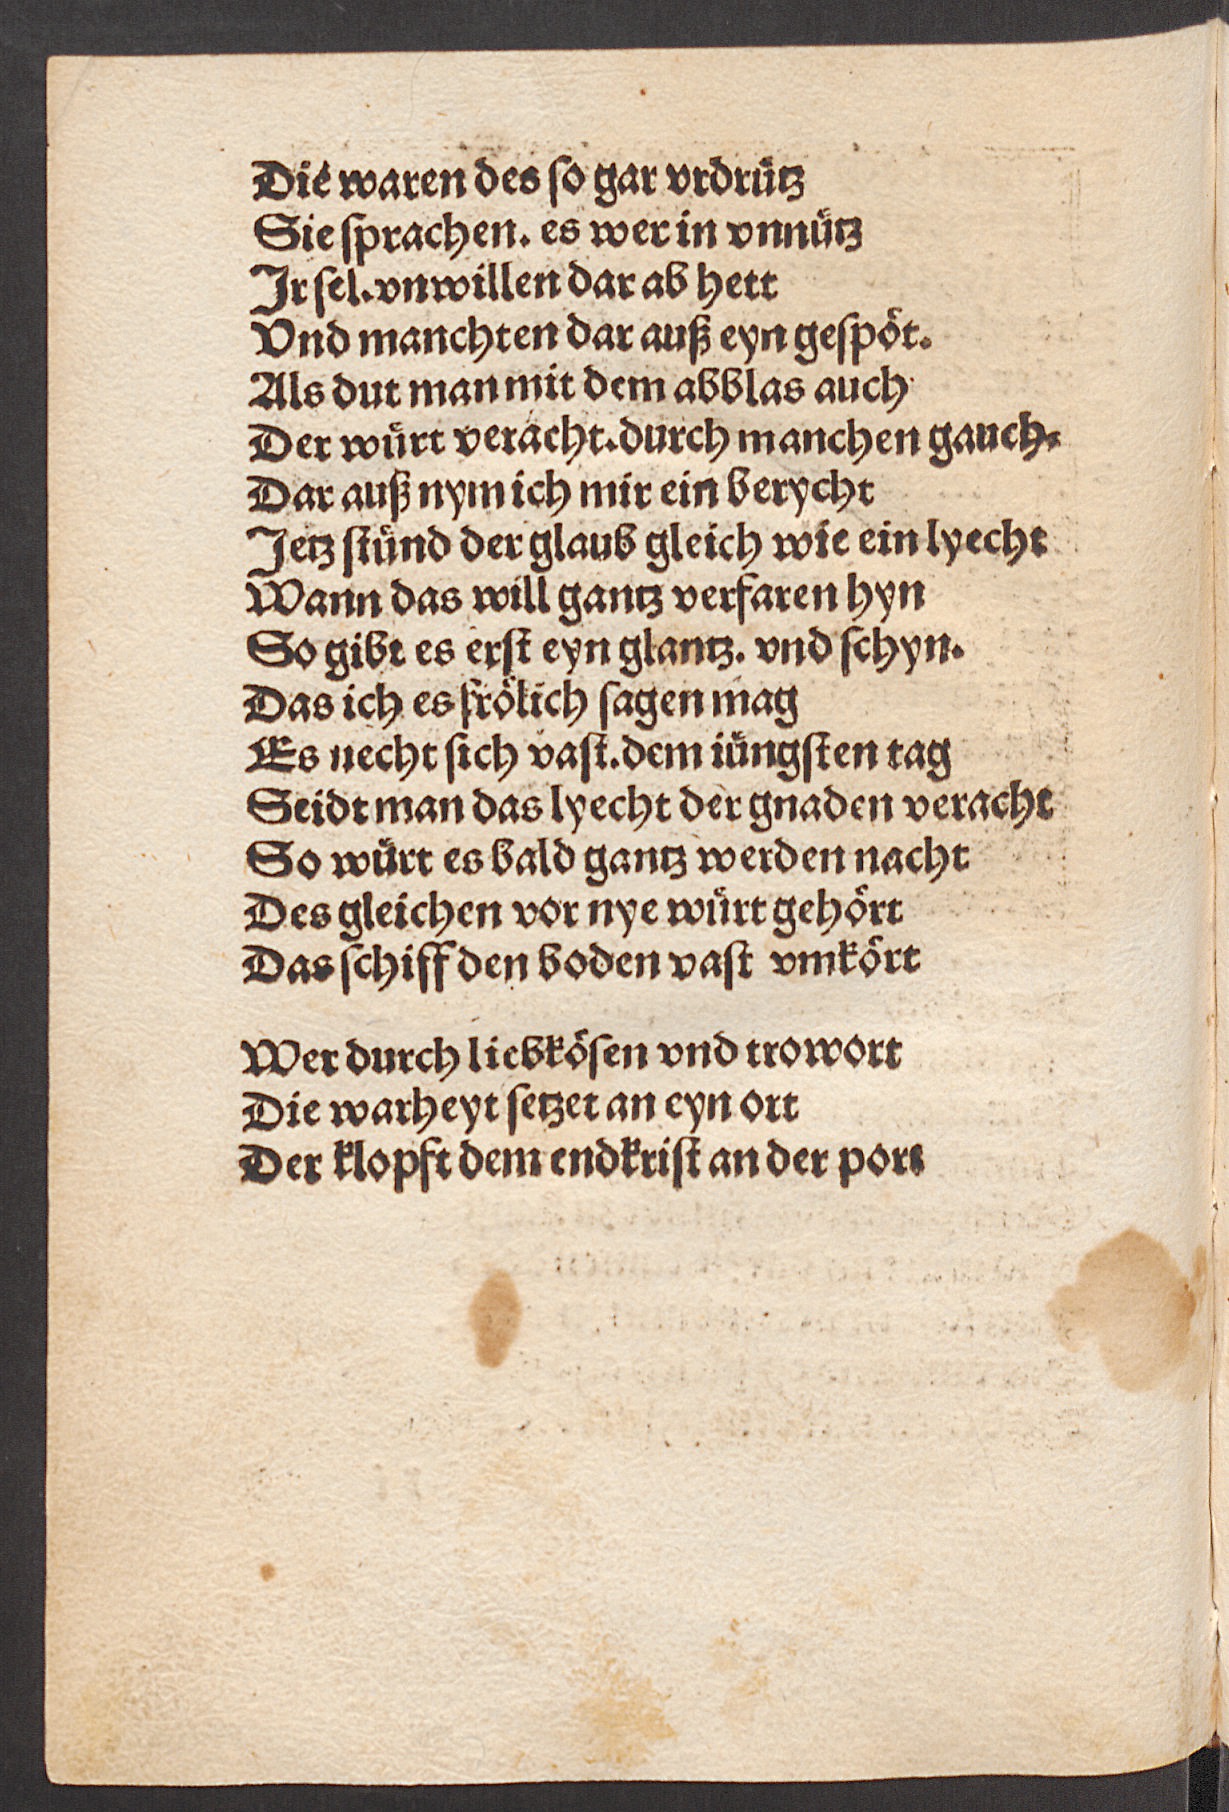 Die waren des ſo gar vrdrütz
Sie ſprachen. es wer in vnnütz
Ir ſel. vnwillen dar ab hett
Vnd manchten dar auß eyn geſpöt.
Als dut man mit dem abblas auch
Der würt veracht. durch manchen gauch.
Dar auß nym ich mir ein berycht
Jetz ſtünd der glaub gleich wie ein lyecht
Wann das will gantz verfaren hyn
So gibt es erſt eyn glantz. vnd ſchyn.
Das ich es frölich ſagen mag
Es necht ſich vaſt. dem iüngſten tag
Seidt man das lyecht der gnaden veracht
So würt es bald gantz werden nacht
Des gleichen vor nye würt gehört
Das ſchiff den boden vaſt vmkört
Wer durch liebköſen vnd trowort
Die warheyt ſetzet an eyn ort
Der klopft dem endkriſt an der port